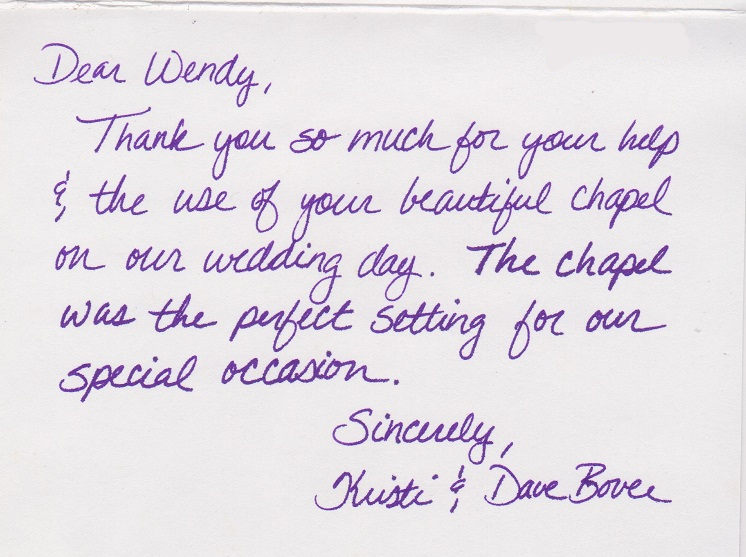 Dear Wendy,
Thank you so much for your help
& the use of your beautiful chapel
on our wedding day. The chapel
was the perfect setting for our
special occasion.
Sincerely,
Kristi & Dave Bovee